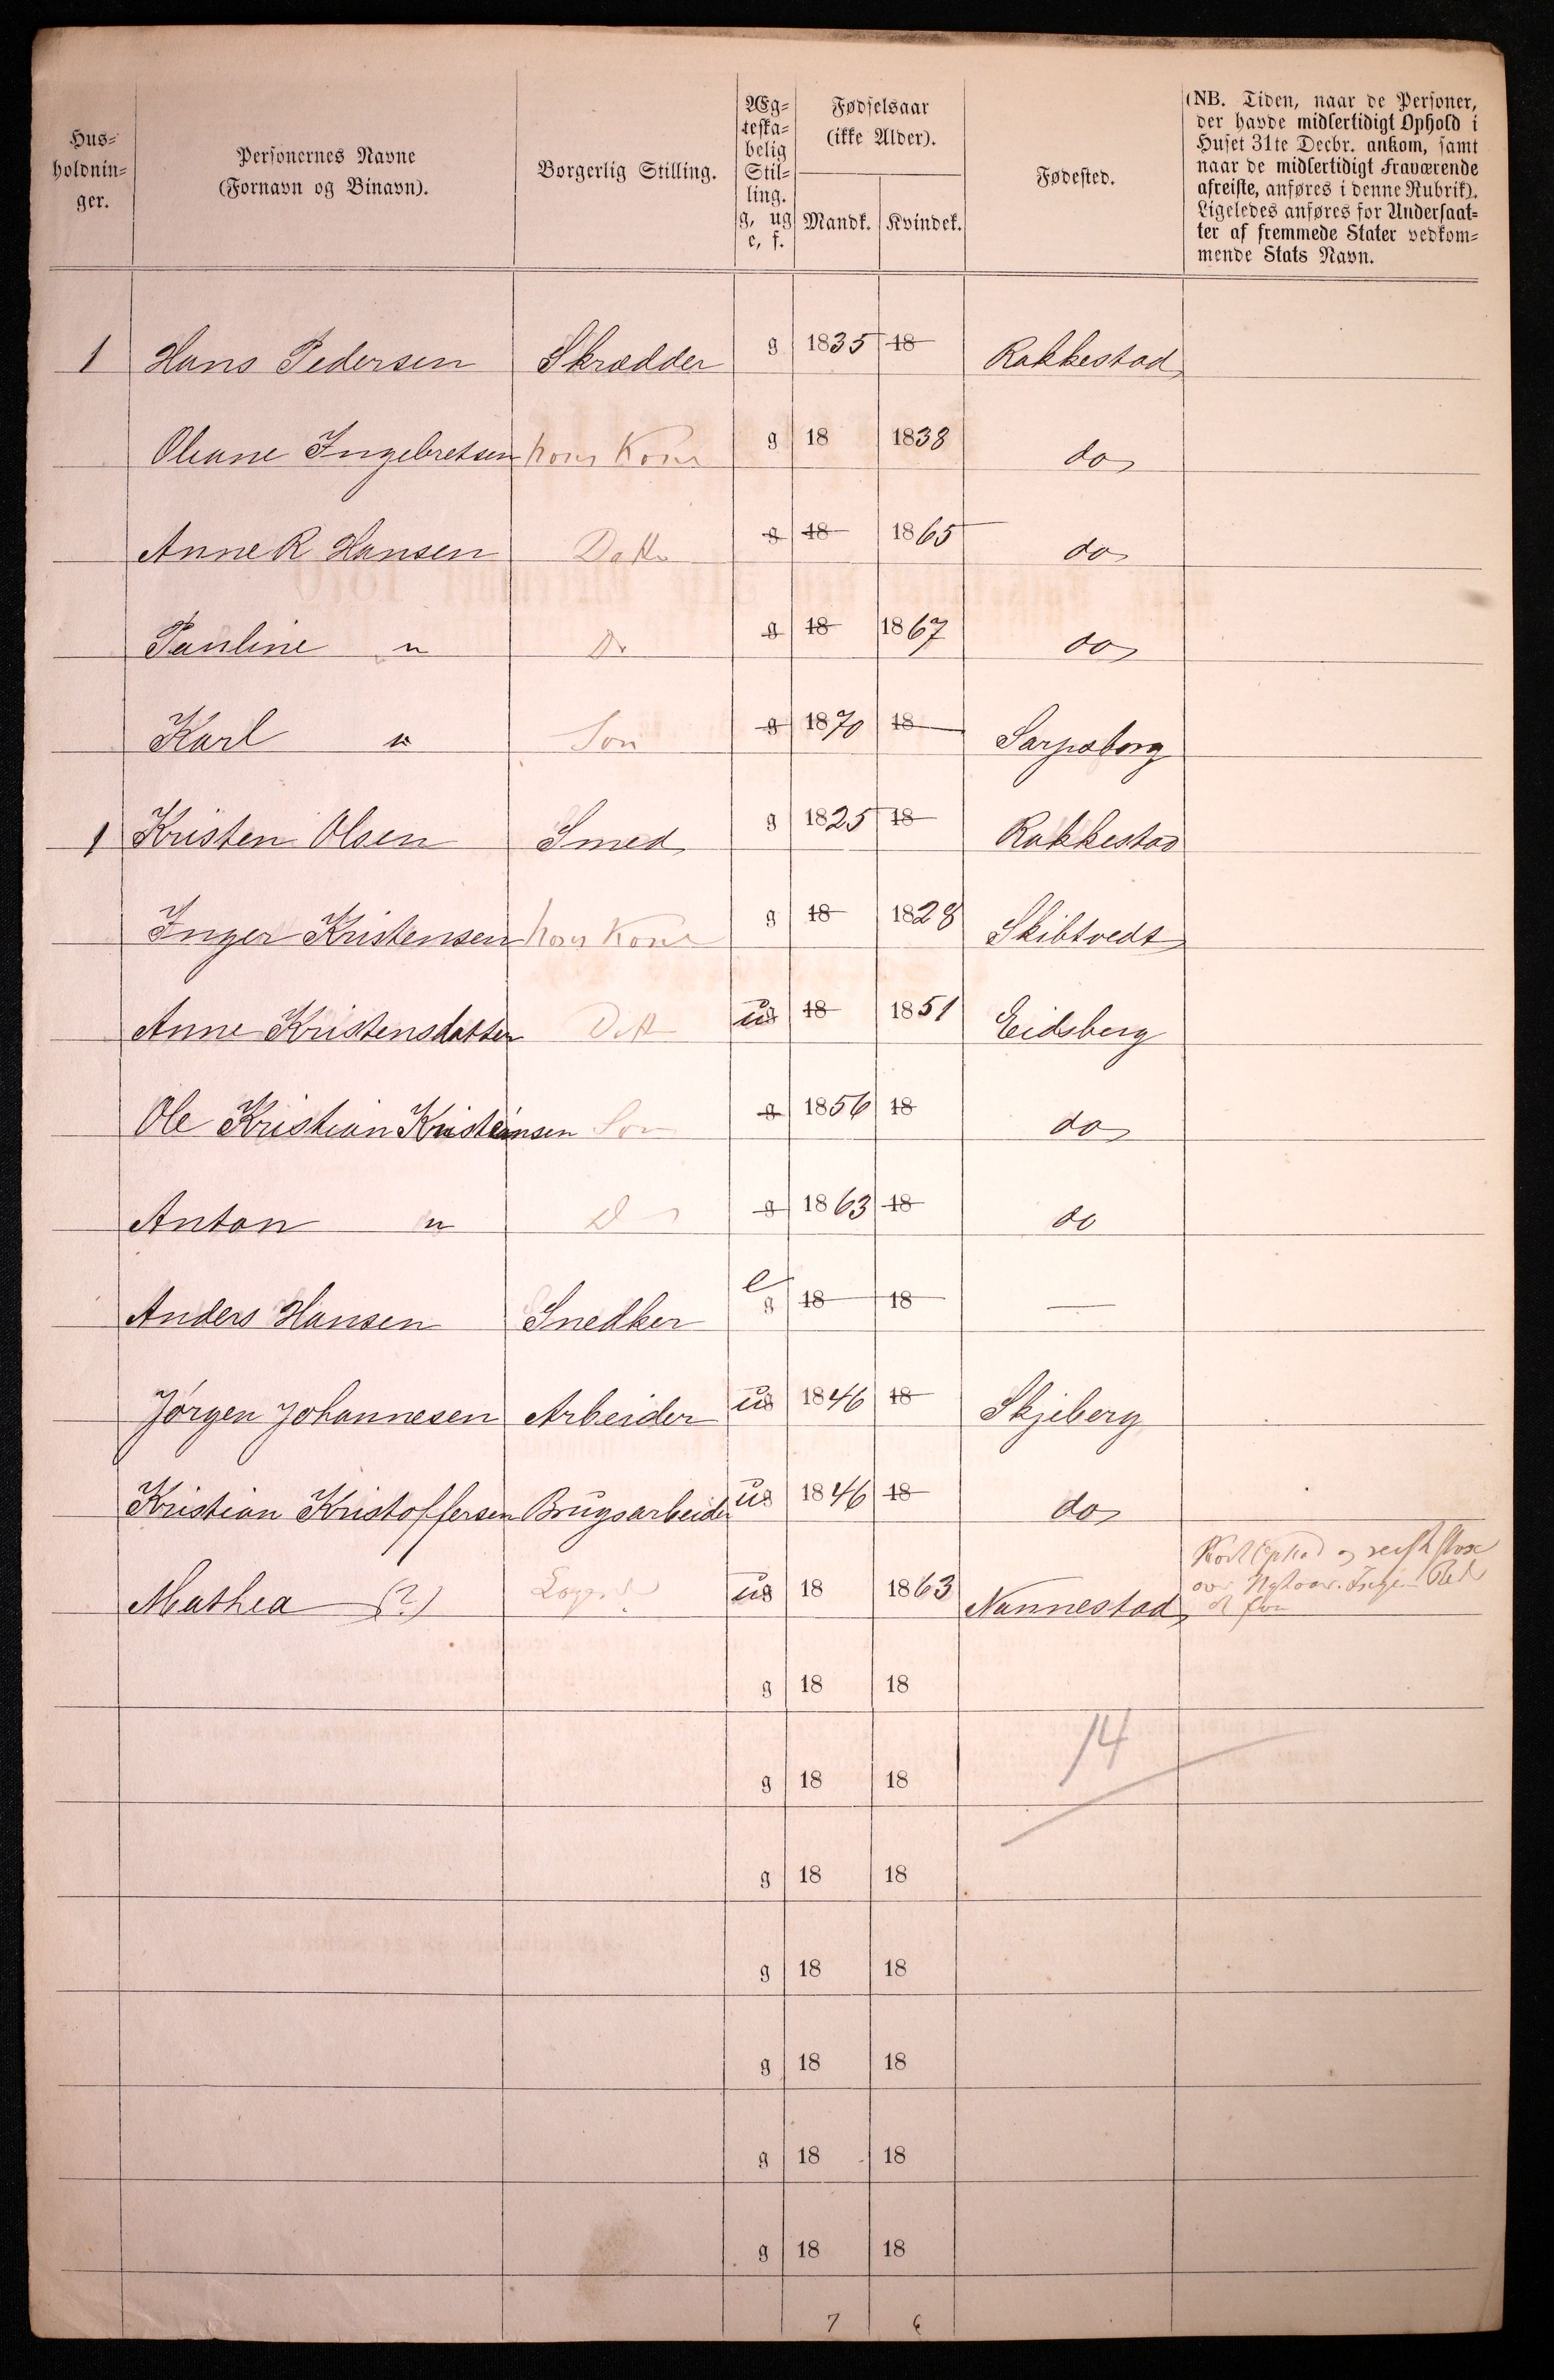 Hus-
holdnin-
ger.
Personernes Navne
(Fornavn og Binavn).
Borgerlig Stilling.
Æg-
teska-
belig
Stil-
ling.
g, ug
e, f.
Fødselsaar
(ikke Alder).
Mandk. Kvindek.
Fødested.
(NB. Tiden, naar de Personer,
der havde midlertidigt Ophold i
Huset 31te Decbr. ankom, samt
naar de midlertidigt fraværende
afreiste, anføres i denne Rubrik).
Ligeledes anføres for Undersaat-
ter af fremmede Stater vedkom-
mende Stats Navn.
1 Hans Pedersen Skrædder g 1835 18 Rakkestad
Oleane Ingebretsen hans Kone g 18 1838 do
Anne R Hansen Datt g 18 1865 do
Pauline " Do g 18 1867 do
Karl " Søn g 1870 18 Sarpsborg
1 Kristen Olsen Smed g 1825 18 Rakkestad
Inger Kristensen hans Kone g 18 1828 Skibtvedt
Anne Kristensdatter Datt ug 18 1851 Eidsberg
Ole Kristian Kristensen Søn g 1856 18 do
Anton " Do g 1863 18 do
Anders Hansen Snedker e g 18 18 —
Jørgen Johannesen Arbeider ug 1846 18 Skjeberg
Kristian Kristoffersen Brugsarbeider ug 1846 18 do
Mathea (?) ug 18 1863 Nannestad
g 18 18
g 18 18
14
g 18 18
g 18 18
g 18 18
g 18 18
g 18 18
7 6